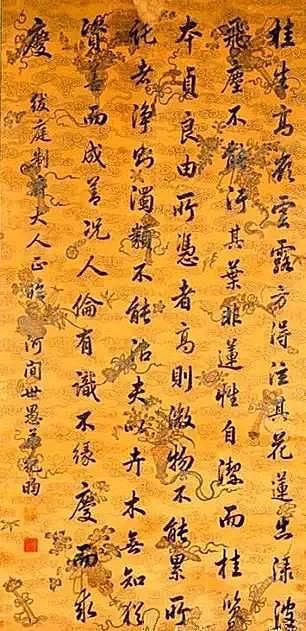 桂生高嶺雲露方得注其花蓮出渌波
飛塵不能污其葉非蓮性自潔而桂質
本貞良由所憑者高則微物不能累所
託者淨則濁類不能沾夫以卉木無知猶
資善而成善況人倫有識不緣慶而求
慶
紱庭制大人正
河間世愚弟紀昀